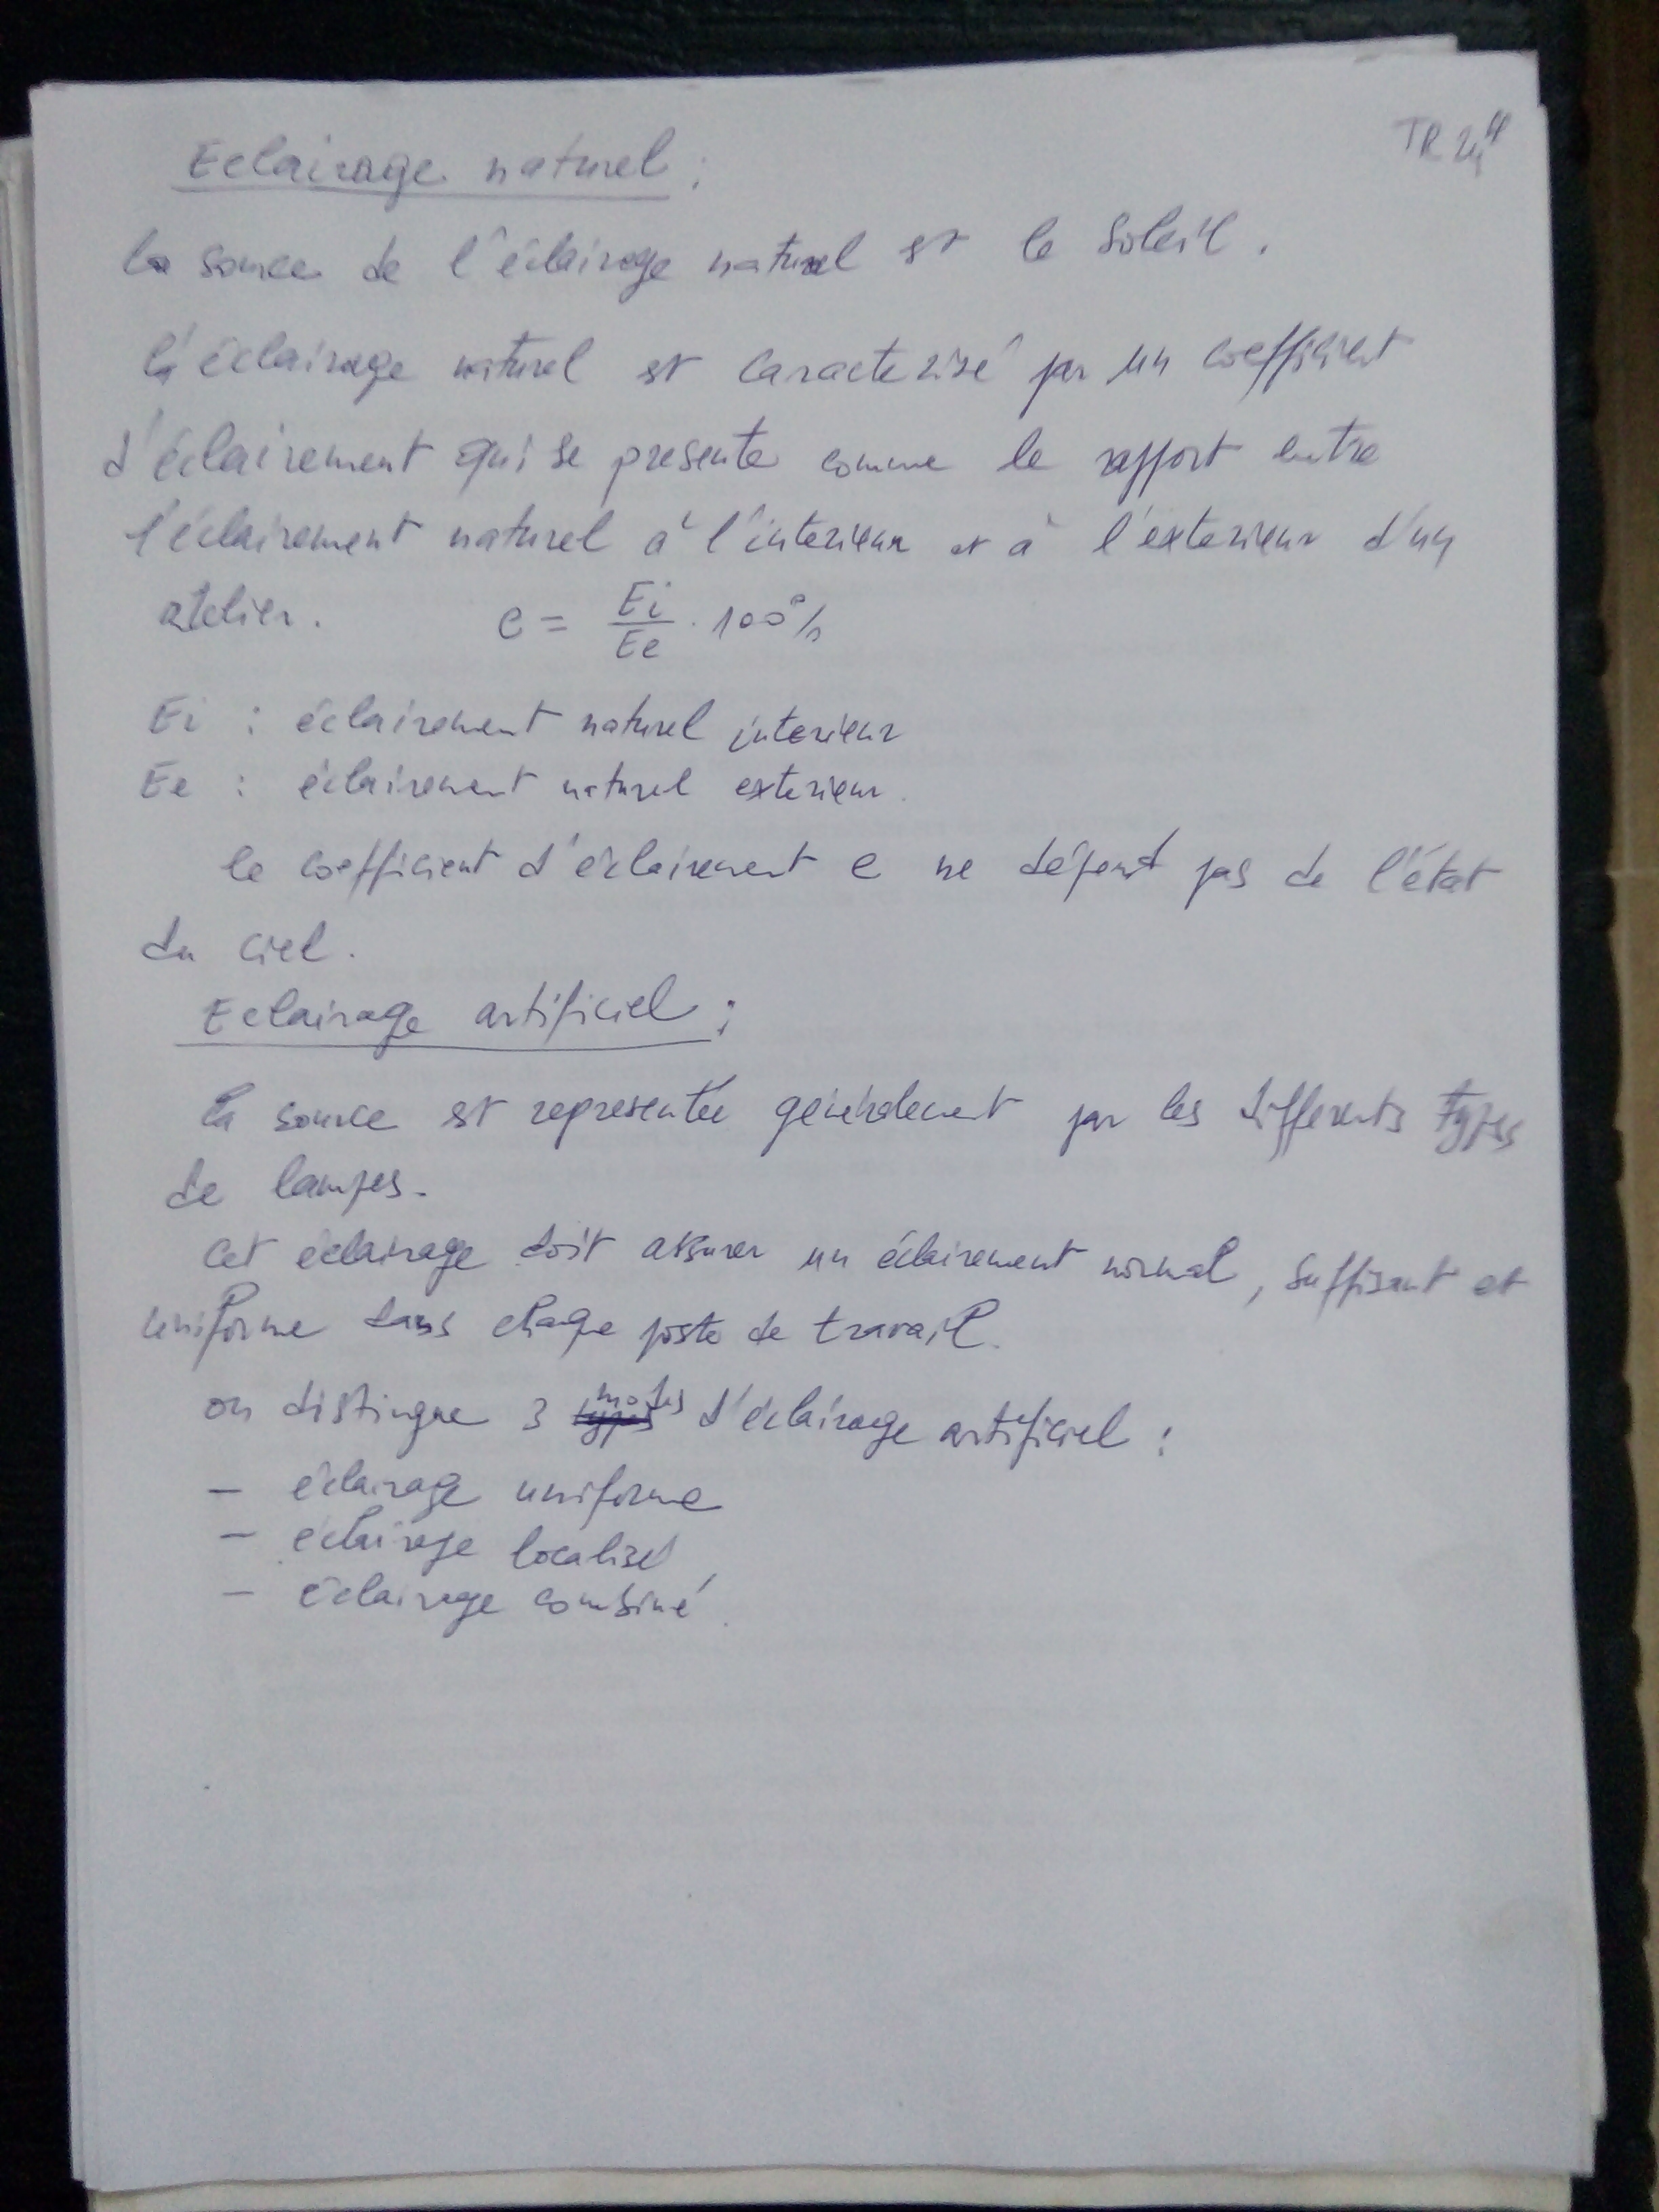 Eclairage naturel :
La source de l'éclairage naturel est le Soleil.
L'éclairage naturel est caracterisé par un coefficient
d'éclairement qui se presente comme le rapport entre
l'éclairement naturel à l'interieur et à l'exterieur d'un
atelier. e = Ei/Ee . 100%
Ei : éclairement naturel interieur
Ee : éclairement naturel exterieur.
le coefficient d'éclairement e ne dépend pas de l'état
du ciel.
Eclairage artificiel :
La source est representée généralement par les differents types
de lampes.
Cet éclairage doit assurer un éclairement normal, suffisant et
uniforme dans chaque poste de travail.
on distingue 3 modes d'éclairage artificiel :
- éclairage uniforme
- éclairage localisé
- éclairage combiné.